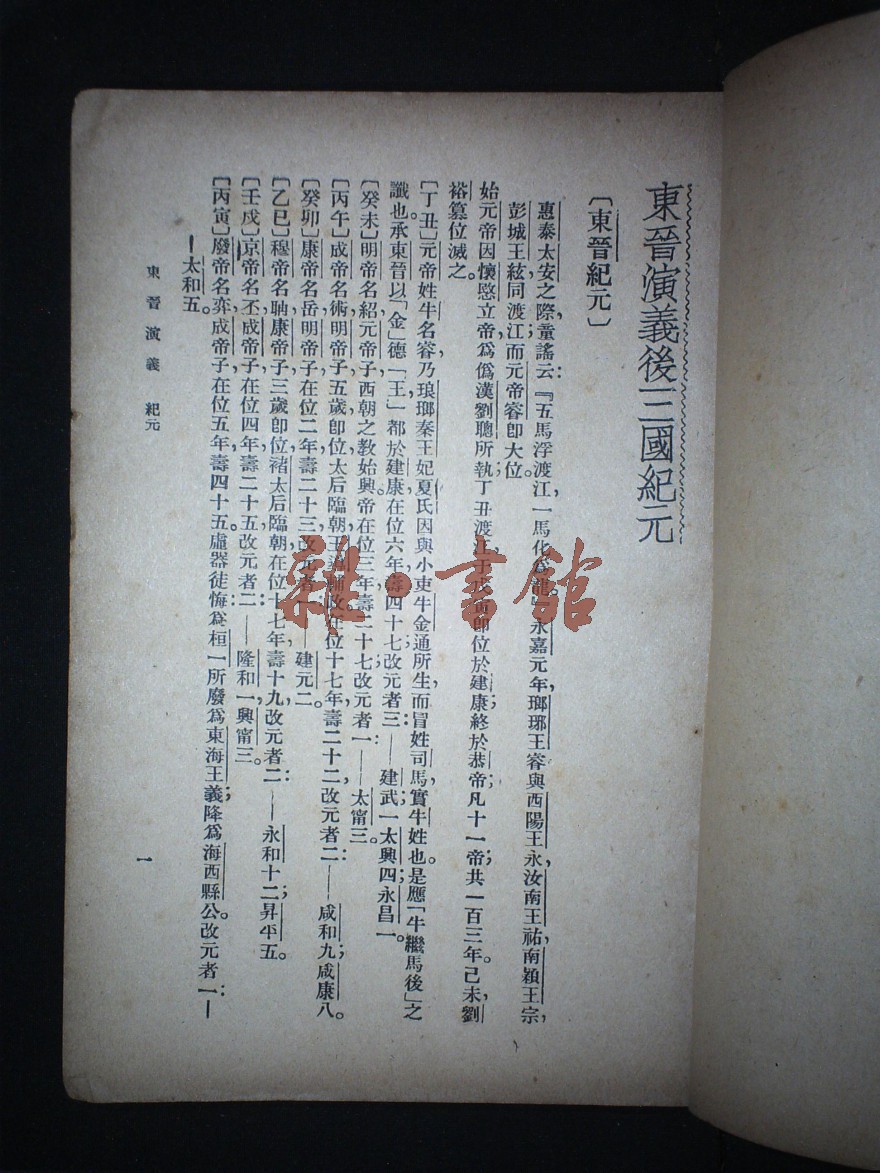 東晉演義後三國紀元
〔東晉紀元〕
惠泰太安之際，童謠云：『五馬浮渡江，一馬化爲龍。』永嘉元年，瑯琊王睿與西陽王永，汝南王祐，南潁王宗，
彭城王絃同渡江；而元帝睿卽大位。
始元帝因懷愍立帝，爲僞漢劉聰所執；丁丑渡江，于戊寅卽位於建康，終於恭帝，凡十一帝，共一百三年。己未，劉
裕篡位滅之。
〔丁丑〕元帝姓牛名睿，乃琅瑯秦王妃夏氏因與小吏牛金通所生，而冒姓司馬，實牛姓也。是應「牛繼馬後」之
讖也。承東晉以「金」德「王」，都於建康，在位六年，壽四十七；改元者三：——建武一；太興四；永昌一。
〔癸未〕明帝名紹，元帝子，西朝之教始興。帝在位三年，壽二十七；改元者一：——太甯三。
〔丙午〕成帝名術，明帝子，五歲卽位，太后臨朝，王導輔政。在位十七年，壽二十二，改元者二：——咸和九；咸康八。
〔癸卯〕康帝名岳，明帝子，在位二年，壽二十三；改元者一：——建元二。
〔乙巳〕穆帝名聃，康帝子，三歲卽位，褚太后臨朝，在位十七年，壽十九；改元者二：——永和十二；昇平五。
〔壬戍〕京帝名丕，成帝子，在位四年，壽二十五；改元者二：——隆和一；興甯三。
〔丙寅〕廢帝名弈，成帝子，在位五年，壽四十五。虛器徒悔，爲桓一所廢爲東海王；義降爲海西縣公。改元者一：—
—太和五。
東晉演義　紀元
一
雜·書館